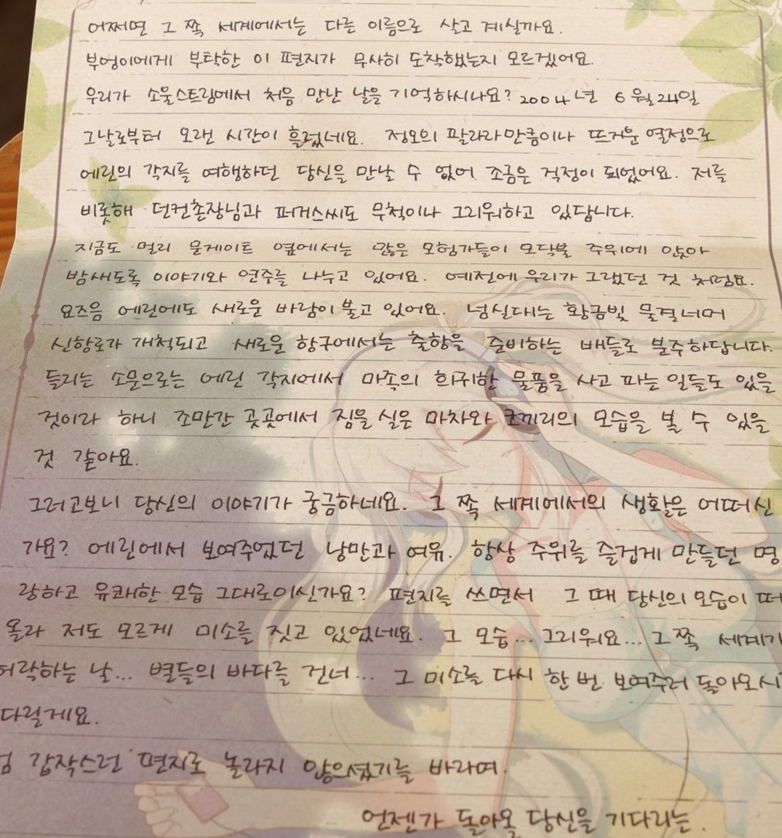 어쩌면 그 쪽 세계에서는 다른 이름으로 살고 계실까요.
부엉이에게 부탁한 이 편지가 무사히 도착했는지 모르겠어요.
우리가 소울스트림에서 처음 만난 날을 기억하시나요? 2004년 6월 24일
그날로부터 오랜 시간이 흘렀네요. 정오의 팔라라만큼이나 뜨거운 열정으로
에린의 각지를 여행하던 당신을 만날 수 없어 조금은 걱정이 되었어요. 저를
비롯해 던컨촌장님과 퍼거스씨도 무척이나 그리워하고 있답니다.
지금도 멀리 문게이트 옆에서는 많은 모험가들이 모닥불 주위에 앉아
밤새도록 이야기와 연주를 나누고 있어요. 예전에 우리가 그랬던 것 처럼요.
요즈음 에린에도 새로운 바람이 불고 있어요. 넘실대는 황금빛 물결너머
신항로가 개척되고 새로운 항구에서는 출항을 준비하는 배들로 분주하답니다.
들리는 소문으로는 에린 각지에서 마족의 희귀한 물품을 사고 파는 일들도 있을
것이라 하니 조만간 곳곳에서 짐을 실은 마차와 코끼리의 모습을 볼 수 있을
것 같아요.
그러고보니 당신의 이야기가 궁금하네요. 그 쪽 세계에서의 생활은 어떠신
가요? 에린에서 보여주었던 낭만과 여유. 항상 주위를 즐겁게 만들던 명
랑하고 유쾌한 모습 그대로이신가요? 편지를 쓰면서 그 때 당신의 모습이 떠
올라 저도 모르게 미소를 짓고 있었네요. 그 모습... 그리워요... 그 쪽 세계가
허락하는 날... 별들의 바다를 건너... 그 미소를 다시 한 번 보여주러 돌아오시
다릴게요.
갑작스런 편지로 놀라지 않으셨기를 바라며.
언젠가 돌아올 당신을 기다리는.